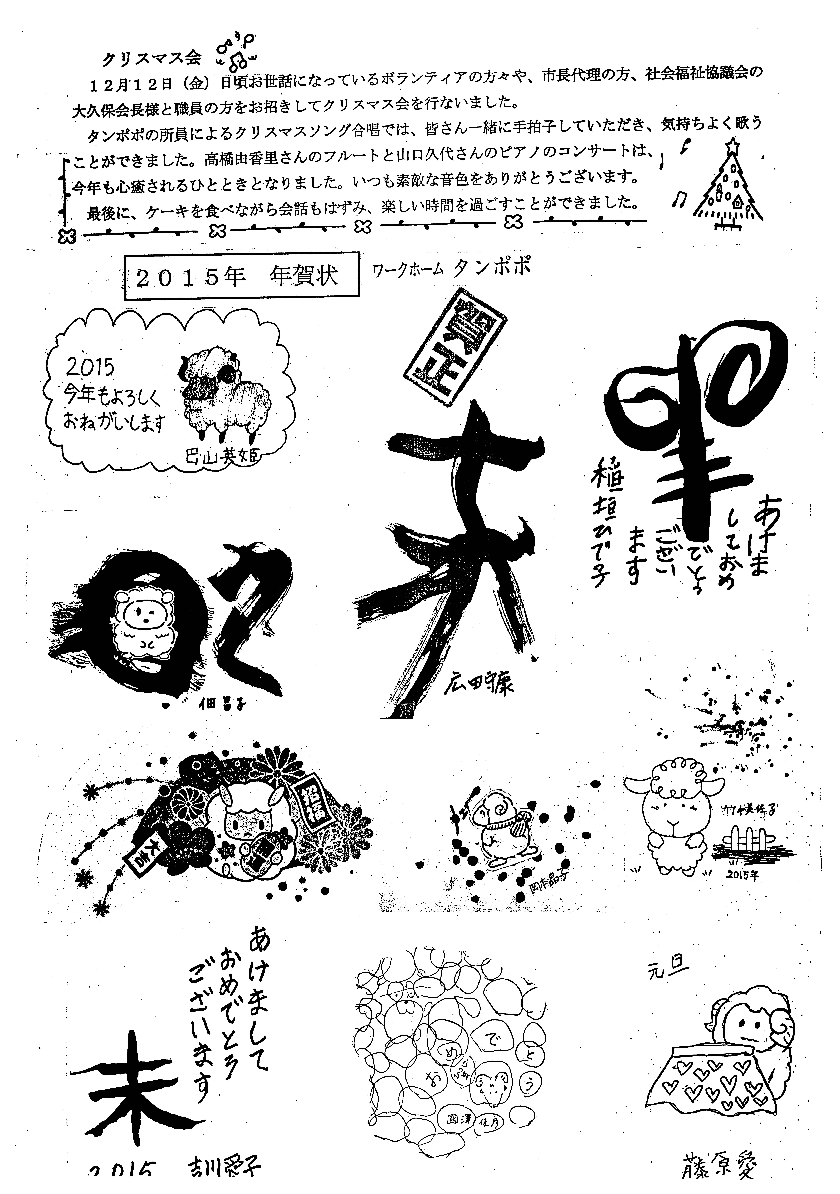 クリスマス会
１２月１２日（金）日頃お世話になっているボランティアの方々や、市長代理の方、社会福祉協議会の
大久保会長様と職員の方をお招きしてクリスマス会を行ないました。
タンポポの所員によるクリスマスソング合唱では、皆さん一緒に手拍子していただき、気持ちよく歌う
ことができました。高橋由香里さんのフルートと山口久代さんのピアノのコンサートは、
今年も心癒されるひとときとなりました。いつも素敵な音色をありがとうございます。
最後に、ケーキを食べながら会話もはずみ、楽しい時間を過ごすことができました。
２０１５年　年賀状
ワークホーム タンポポ
2015
今年もよろしく
おねがいします
巴山英姫
賀正
未
広田守康
あけま
しておめ
でとう
ござい
ます
稲垣ひで子
佃 昌子
大吉
岡本晶子
2015年
あけまして
おめでとう
ございます
未
2015 吉川愛子
おめでとう
元旦
藤原愛